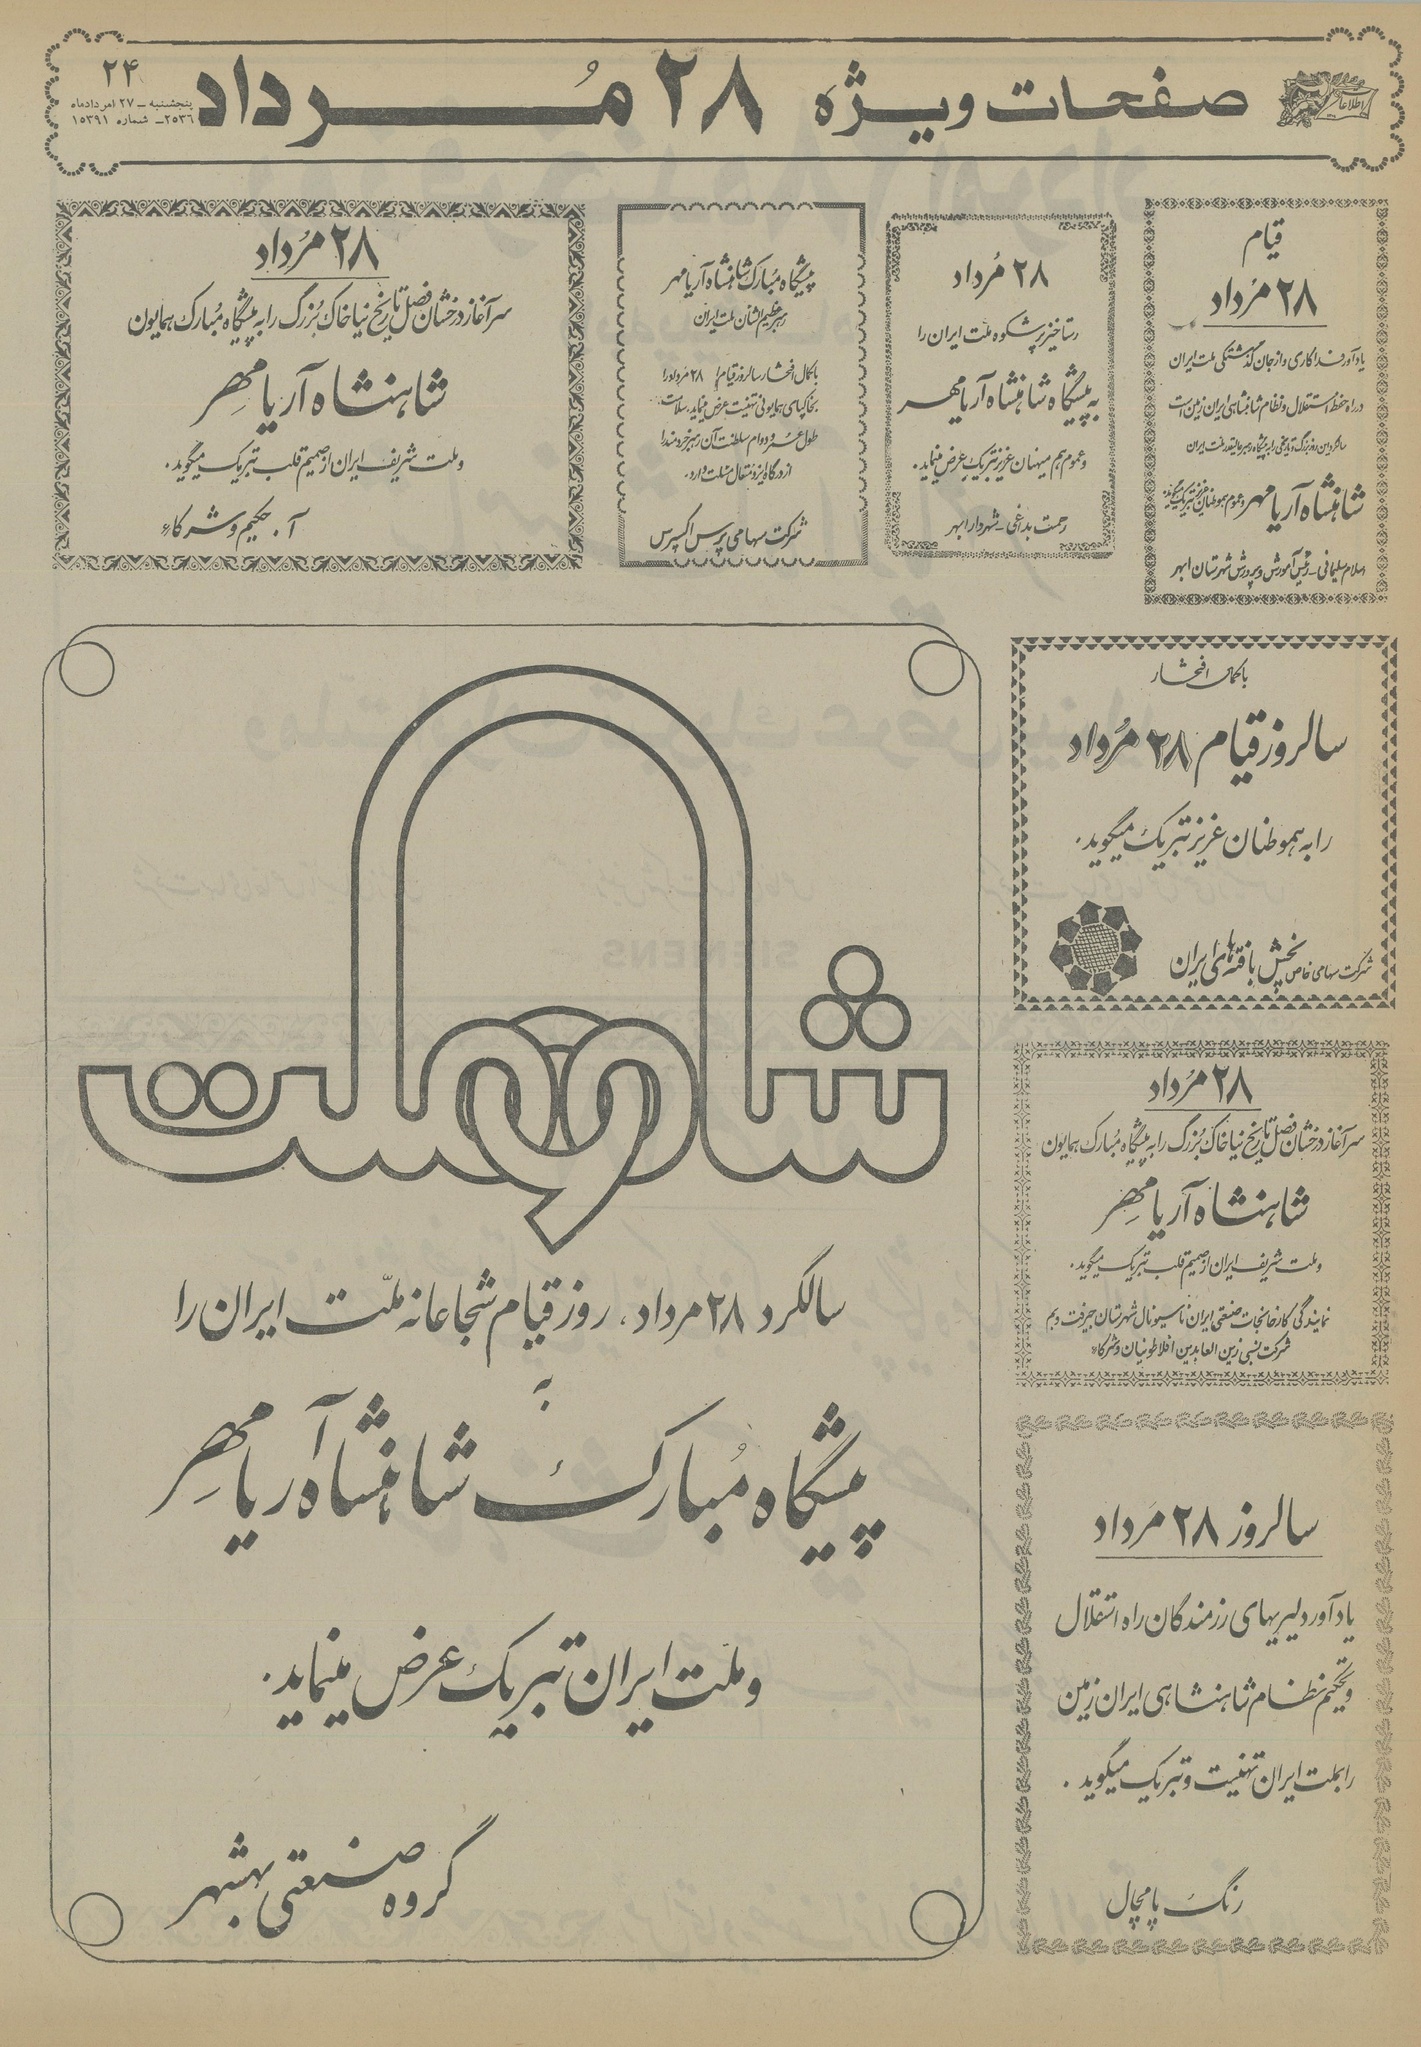 اطلاعات
صفحات ویژه ۲۸ مُرداد
۲۴
پنجشنبه – ۲۷ امردادماه
۲۵۳۶ – شماره ۱۵۳۹۱
قیام
۲۸ مُرداد
یادآور فداکاری و از جان گذشتگی ملت ایران
در راه حفظ استقلال و نظام شاهنشاهی ایران زمین است
سالگرد این روز بزرگ و تاریخی را به پیشگاه رهبر عالیقدر ملت ایران
شاهنشاه آریامهر و عموم هموطنان عزیز تبریک میگوید.
اسلام سلیمانی – رئیس آموزش و پرورش شهرستان ابهر
۲۸ مُرداد
رستاخیز پرشکوه ملت ایران را
به پیشگاه شاهنشاه آریامهر
و عموم هم میهنان عزیز تبریک عرض مینماید.
رحمت بداغی – شهردار ابهر
پیشگاه مبارک شاهنشاه آریامهر
رهبر عظیم الشان ملت ایران
با کمال افتخار سالروز قیام ۲۸ مرداد را
بخاکپای همایونی تهنیت عرض مینماید، سلامت،
طول عمر و دوام سلطنت آن رهبر خردمند را
از درگاه ایزد متعال مسئلت دارد.
شرکت سهامی پرس اکسپرس
۲۸ مُرداد
سرآغاز درخشان فصل تاریخ نیاخاک بُزرگ را به پیشگاه مُبارک همایون
شاهنشاه آریامهِر
و ملت شریف ایران از صمیم قلب تبریک میگوید.
آ. حکیم و شرکاء
با کمال افتخار
سالروز قیام ۲۸ مُرداد
را به هموطنان عزیز تبریک میگوید.
شرکت سهامی خاص پخش بافته‌های ایران
۲۸ مُرداد
سرآغاز درخشان فصل تاریخ نیاخاک بُزرگ را به پیشگاه مُبارک همایون
شاهنشاه آریامهِر
و ملت شریف ایران از صمیم قلب تبریک میگوید.
نمایندگی کارخانجات صنعتی ایران ناسیونال شهرستان جیرفت و بم
شرکت نسبی زین العابدین افلاطونیان و شرکاء
سالروز ۲۸ مَرداد
یادآور دلیریهای رزمندگان راه استقلال
و تحکیم نظام شاهنشاهی ایران زمین
را بملت ایران تهنیت و تبریک میگوید.
رنگ پامچال
شاه و ملت
سالگرد ۲۸ مرداد، روز قیام شجاعانه ملّت ایران را
به
پیشگاه مُبارک شاهنشاه آریامهِر
و ملّت ایران تبریک عرض مینماید.
گروه صنعتی بهشهر